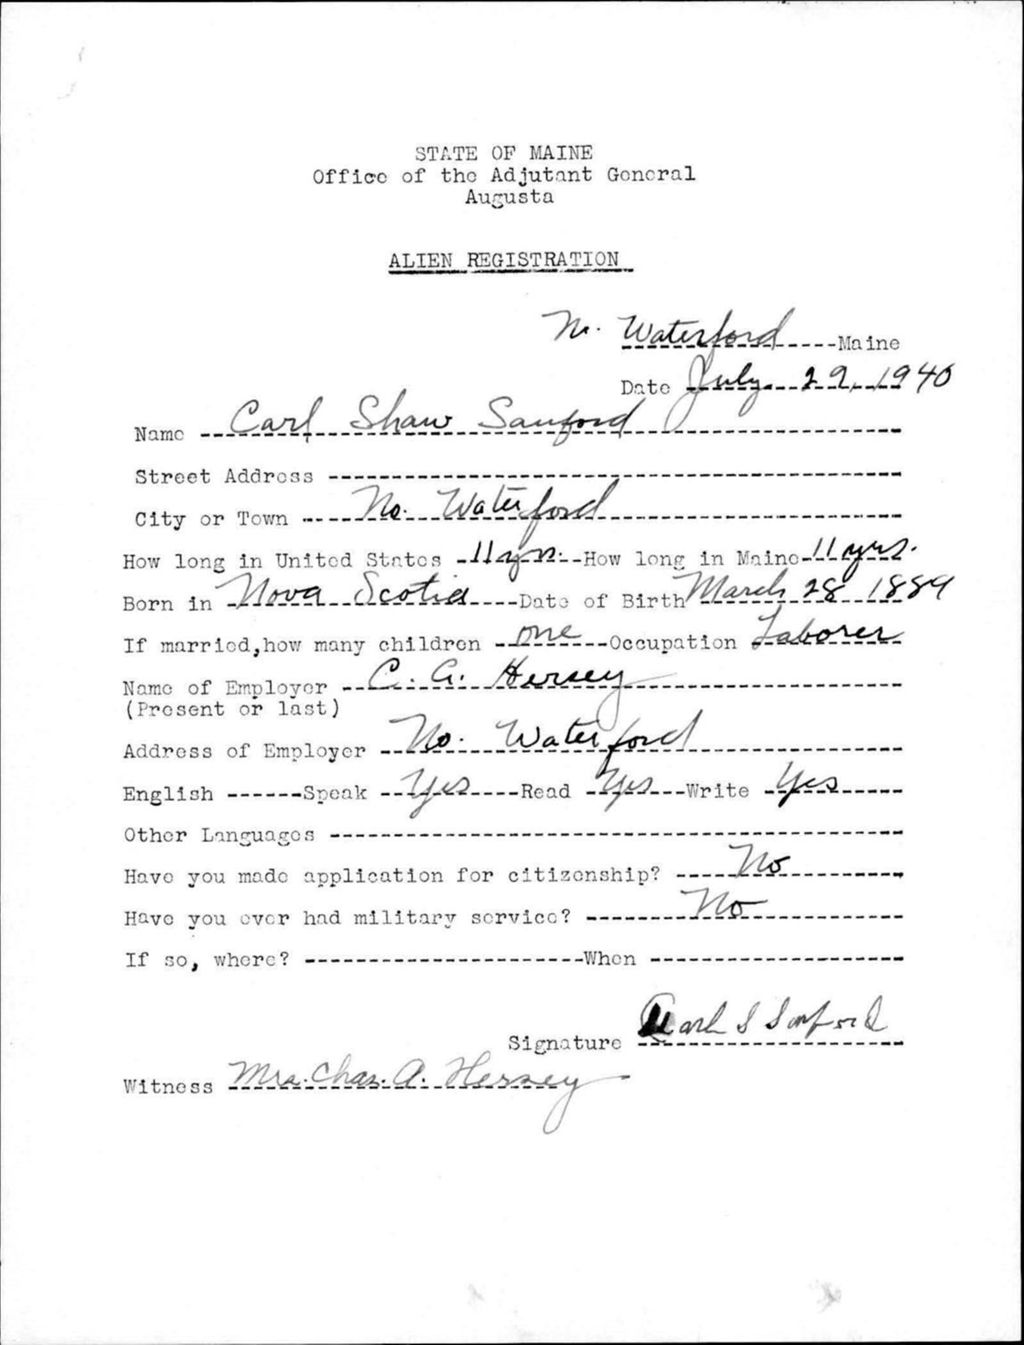 STATE OF MAINE
Office of the Adjutant General
Augusta
ALIEN REGISTRATION
No. Waterford Maine
Date July 29, 1940
Name Carl Shaw Sanford
Street Address
City or Town No. Waterford
How long in United States 11 yrs. How long in Maine 11 yrs.
Born in Nova Scotia Date of Birth March 28 1889
If married, how many children one Occupation Laborer
Name of Employer C. A. Hersey
(Present or last)
Address of Employer No. Waterford
English Speak Yes Read Yes Write Yes
Other Languages
Have you made application for citizenship? No
Have you ever had military service? No
If so, where? When
Signature Carl S Sanford
Witness Mrs. Chas. A. Hersey